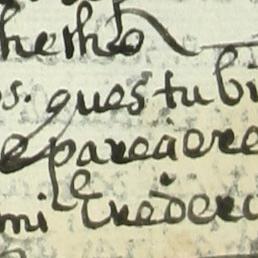 hecho
os. ques tu bi
e pareciere
mi eredero